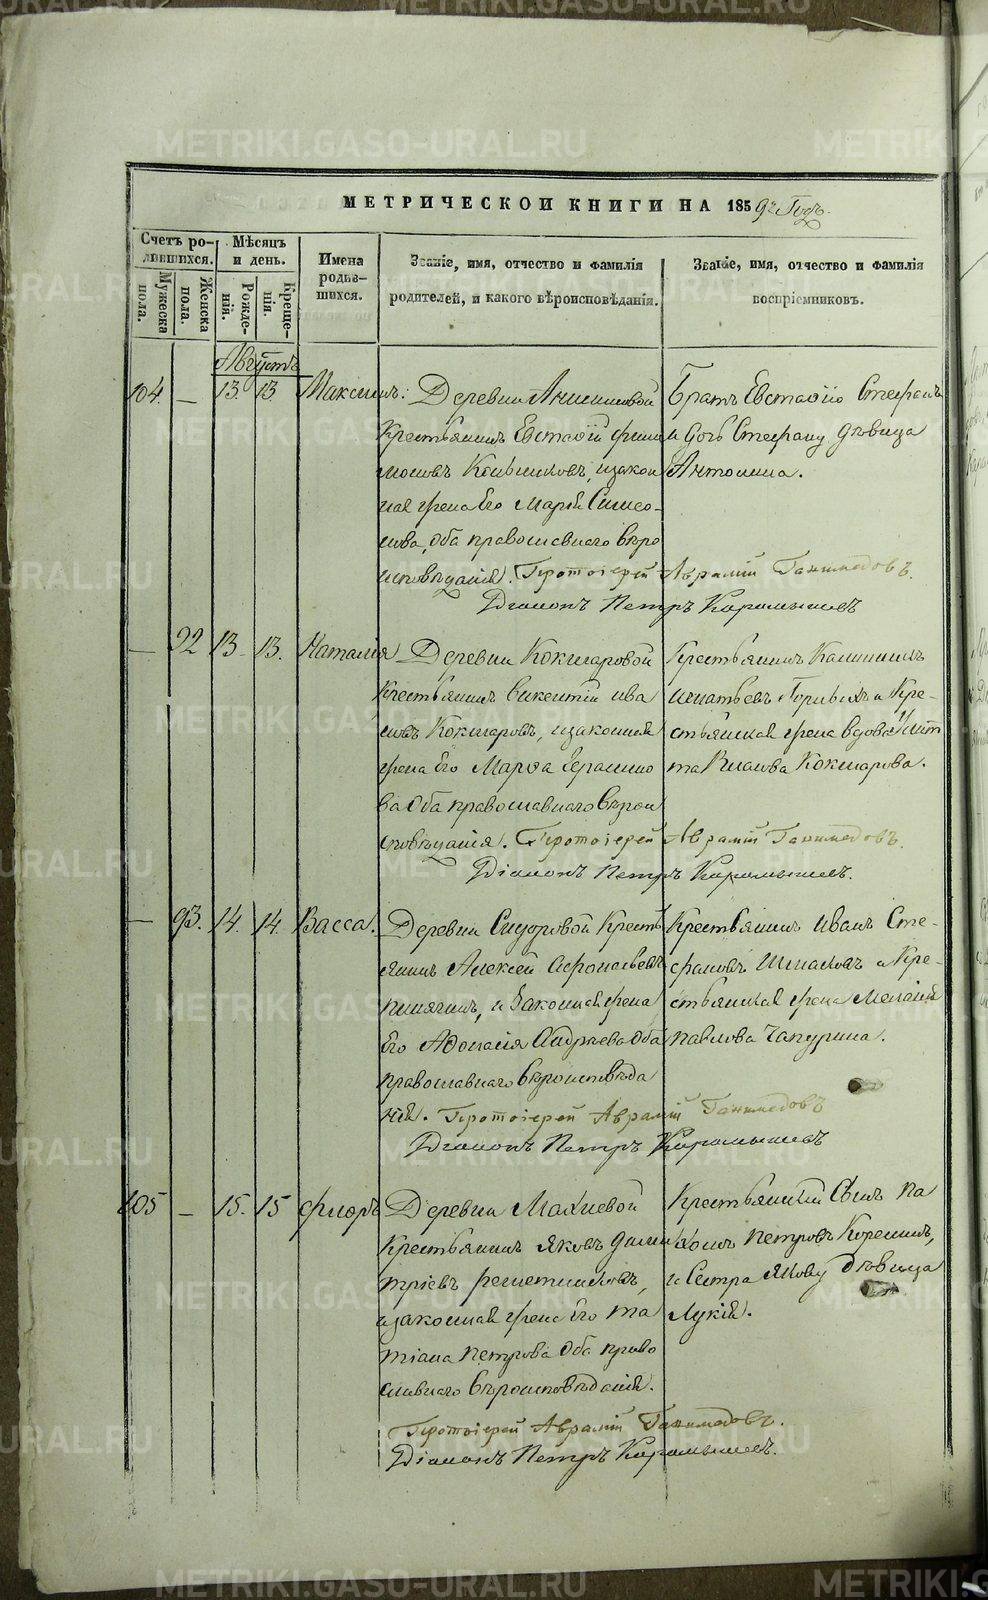 МЕТРИЧЕСКОЙ КНИГИ НА 1859й Годъ.
Счетъ родившихся.
Мужеска пола.
Женска пола.
Мѣсяцъ и день.
Рожденій.
Крещенія.
Имена родившихся.
Званіе, имя, отчество и фамилія
родителей, и какого вѣроисповѣданія.
Званіе, имя, отчество и фамилія
воспріемниковъ.
Августъ
104. — 13. 13 Максимъ:
Деревни
Крестьянинъ Евстафій
изакон
ная жена Его Марѳа Симео-
нова, оба православнаго вѣро
исповѣданія. Протоіерей Аврамій Ганимедовъ.
Діаконъ Петръ Карамышевъ
Братъ Евстафію Стефанъ
и дочь Стефану дѣвица
Антонина.
— 92 13 13. Наталія
Деревни Кокшаровой
Крестьянинъ Викентій Ива
новъ Кокшаровъ, изаконная
жена Его Марѳа Герасимо
ва оба православнаго вѣрои
сповѣданія. Протоіерей Аврамій Ганимедовъ.
Діаконъ Петръ Карамышевъ.
Крестьянинъ Калинникъ
Игнатьевъ и Кре-
стьянская жена вдова
Кокшарова.
— 93. 14. 14. Васса.
Деревни Сидоровой Кресть
янинъ Алексей Афонасьевъ
и Законная жена
Его Афонасія Андреева оба
православнаго вѣроисповѣда
нія. Протоіерей Аврамій Ганимедовъ
Діаконъ Петръ Карамышевъ
Крестьянинъ Иванъ Сте-
фановъ Шпаковъ и Кре-
стьянская жена Меланія
Павлова Чапурина.
105 — 15. 15 Флоръ
Деревни Махневой
Крестьянинъ Яковъ Дими
тріевъ Решетниковъ,
изаконная жена Его Та
тіана Петрова оба право
славнаго вѣроисповѣданія.
Протоіерей Аврамій Ганимедовъ.
Діаконъ Петръ Карамышевъ.
Крестьянскій Сынъ Па
хомъ Петровъ Корелинъ,
и Сестра Якову дѣвица
Лукія.
METRIKI.GASO-URAL.RU